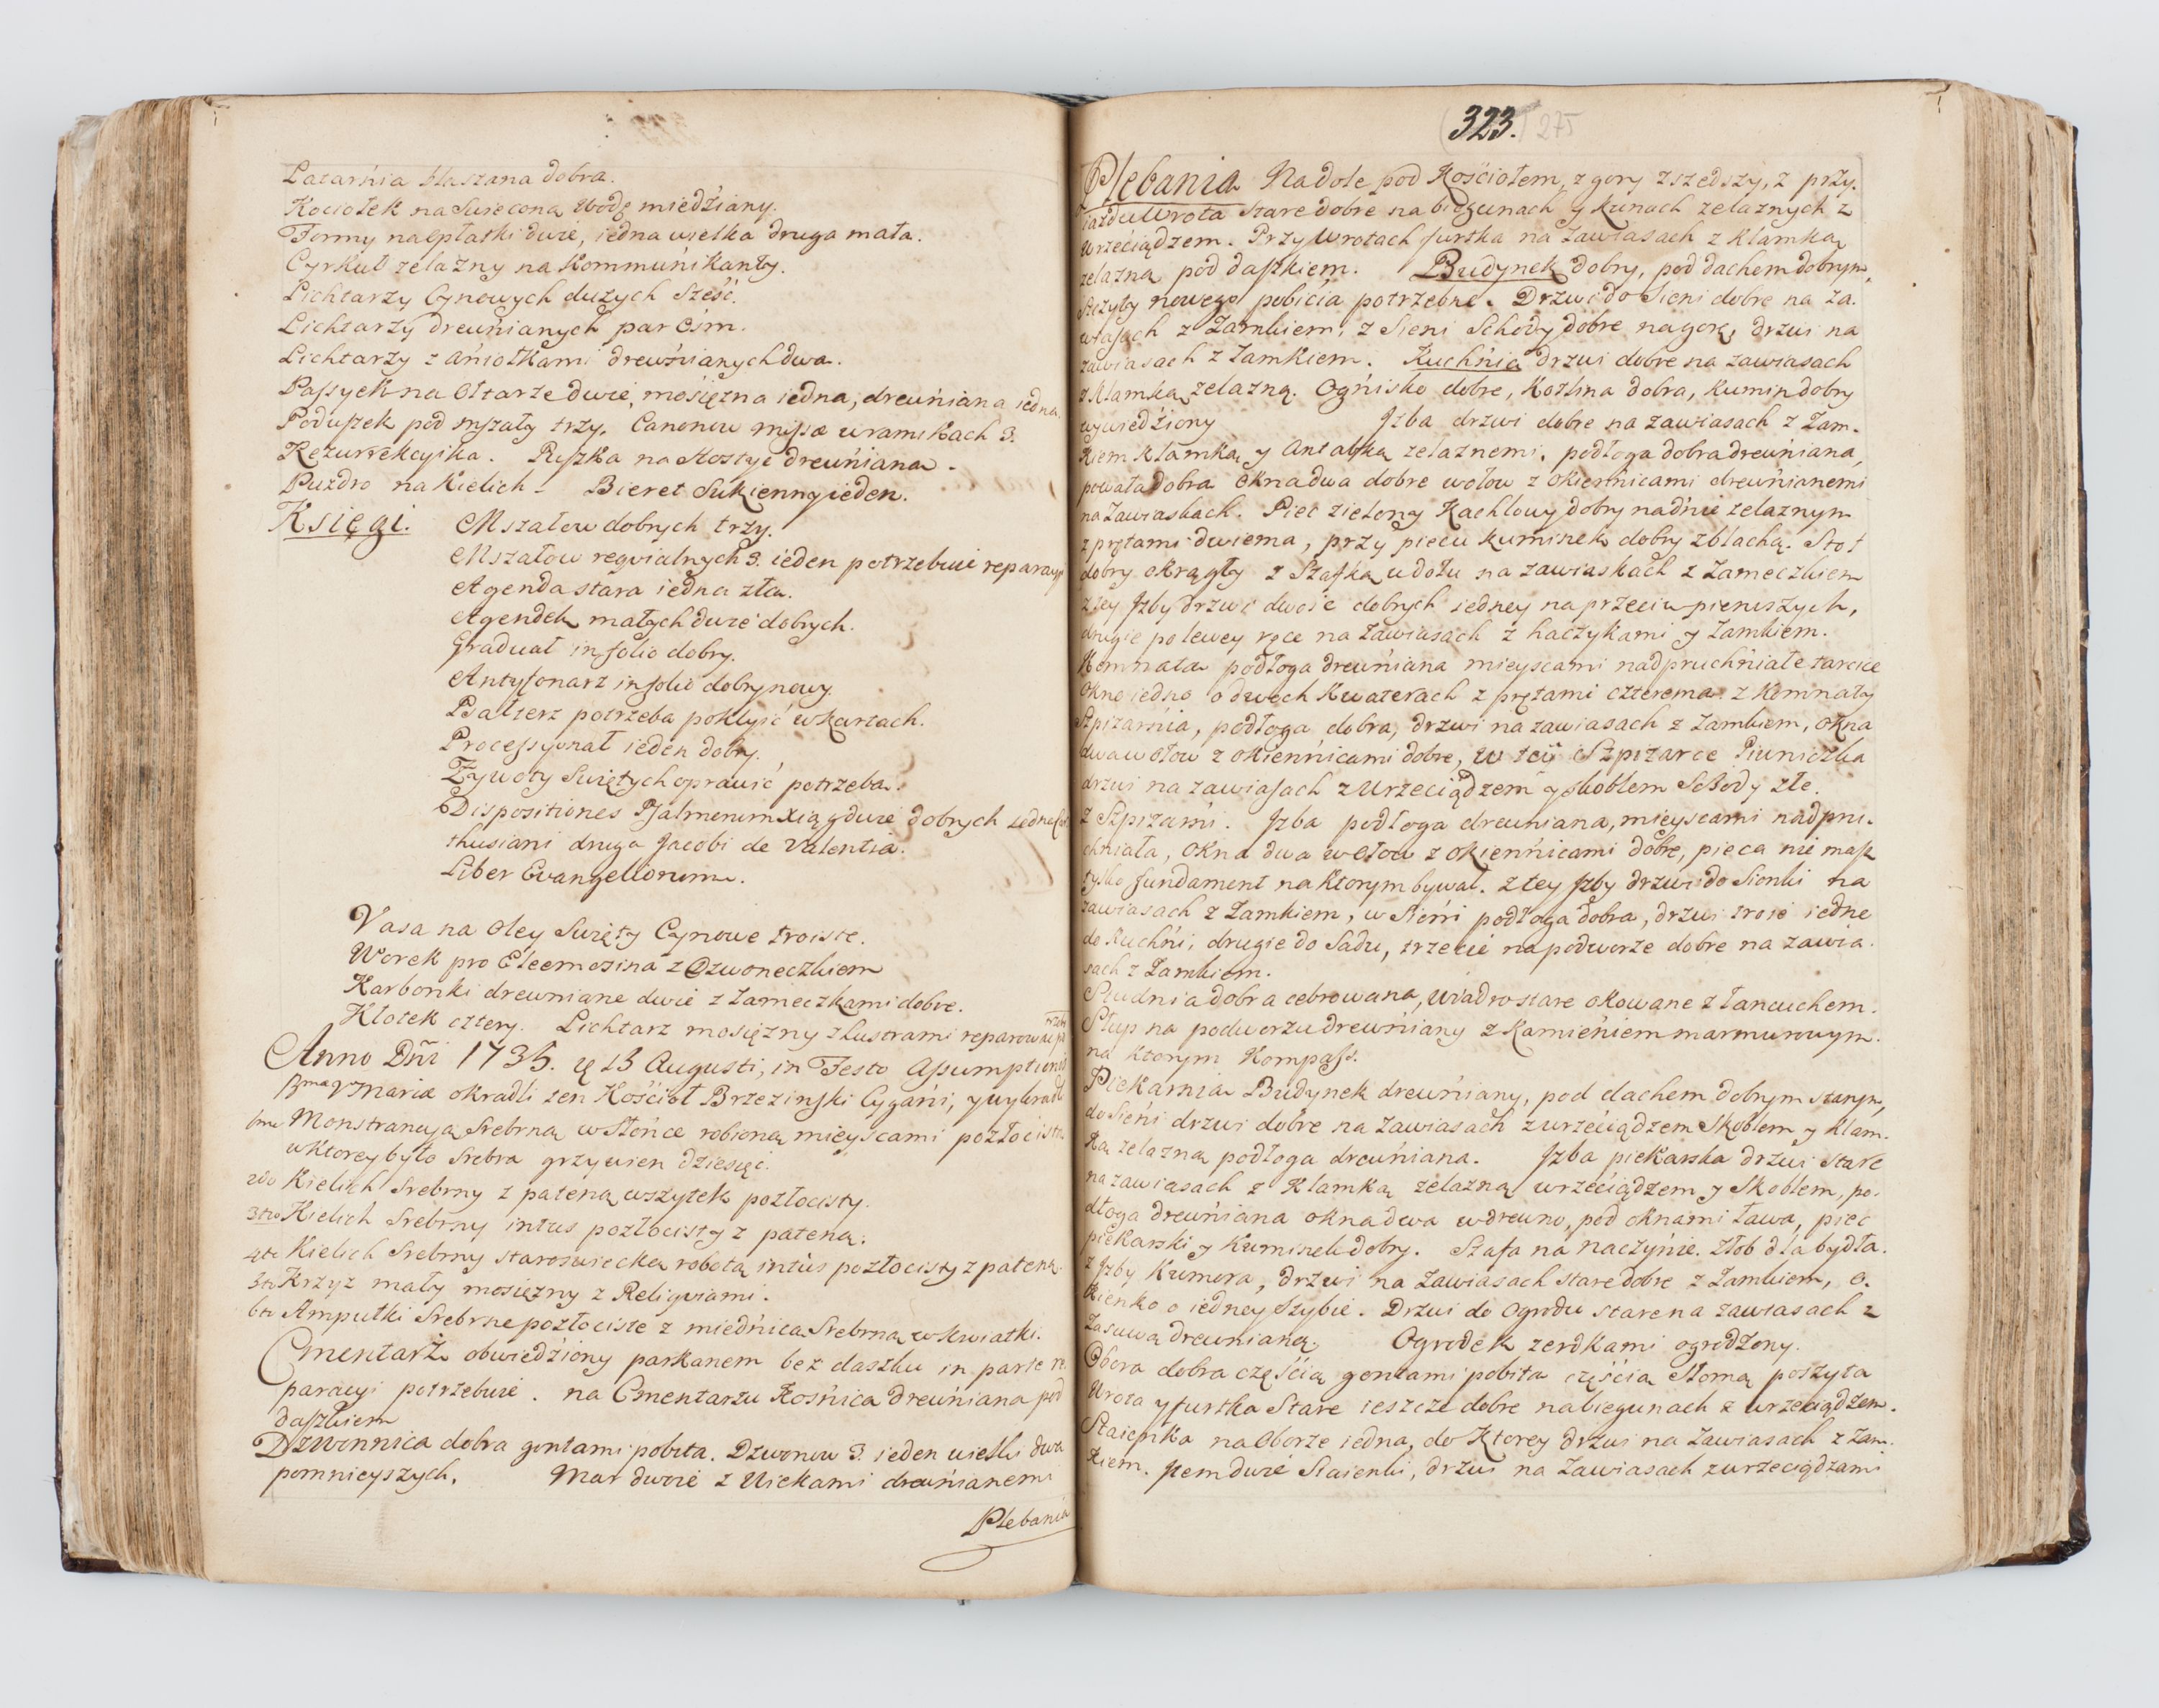 Latarnia blaszana dobra.
Kociołek na Swięconą Wodę miedźiany.
Formy na Opłatki dwie, iedna wielka druga mała.
Cyrkuł zelazny na Kommunikanty.
Lichtarzy Cynowych duzych Sześć.
Lichtarzy drewnianych par Ośm.
Lichtarzy z Aniołkami drewnianych dwa.
Passyek na Ołtarze dwie, mosięzna iedna, drewniana iedna.
Poduszek pod mszały trzy. Canonow missæ w ramkach 3.
Rezurrekcyika. Puszka na Hostye drewniana.
Puzdro na Kielich. Bieret Sukienny ieden.
Księgi. Mszałow dobrych trzy.
Mszałow reqvialnych 3. ieden potrzebuie reparacyi
Agenda stara iedna zła.
Agendek małych dwie dobrych.
Graduał in folio dobry.
Antyfonarz in folio dobry nowy.
Psałterz potrzeba poklyić w kartach.
Processyonał ieden dobry.
Zywoty Swiętych oprawić potrzeba.
Dispositiones Psalmorum xiąg dwie dobrych iedna
thusiani druga Jacobi de Valentia.
Liber Evangeliorum.
Vasa na Oley Swięty Cynowe troiste.
Worek pro Eleemosina z Dzwoneczkiem
Karbonki drewniane dwie z Zameczkami dobre.
Kłotek cztery. Lichtarz mosięzny z lustrami reparować trzeba
Anno Dñi 1735. 15 Augusti, in Festo Assumptionis
Bmæ V Mariæ okradli ten Kośćioł Brzezinski Cygáni, y wykradli
1mo Monstrancyą Srebrną w Słońce robioną mieyscami pozłocistą
w ktorey było Srebra grzywien dziesięć.
2do Kielich Srebrny z pateną wszytek pozłocisty.
3tio Kielich Srebrny intus pozłocisty z pateną.
4to Kielich Srebrny staroswiecką robotą intùs pozłocisty z pateną.
5to Krzyz mały mosięzny z Religviami.
6to Ampułki Srebrne pozłociste z miednicą Srebrną w kwiatki.
Cmentarz obwiedźiony parkanem bez daszku in parte re-
paracyi potrzebuie. na Cmentarzu Kośnica drewniana pod
daszkiem
Dzwonnica dobra gontami pobita. Dzwonow 3. ieden wielki dwa
pomnieyszych. Mar dwoie z Wiekami drewnianemi
Plebania
323. 275
Plebania Na dole pod Kościołem, z gory zszedszy, z przy-
iazdu Wrota stare dobre na biegunach y kunach zelaznych z
Wrzeciądzem. Przy Wrotach furtka na Zawiasach z klamką
zelazną pod daszkiem. Budynek dobry, pod dachem dobrym,
Szczyty nowego pobicia potrzebne. Drzwi do Sieni dobre na za-
wiasach z Zamkiem, z Sieni Schody dobre na gorę, drzwi na
zawiasach z Zamkiem. Kuchnia drzwi dobre na zawiasach
z Klamką zelazną. Ogńisko dobre, Kotlina dobra, kumin dobry
wywiedźiony Jzba drzwi dobre na zawiasach z Zam-
kiem klamką y Antabką zelaznemi, podłoga dobra drewniana,
powała dobra okna dwa dobre w ołow z okiennicami drewnianemi
na Zawiaskach. Piec zielony Kachlowy dobry na dnie zelaznym
z prętami dwiema, przy piecu kuminek dobry z blachą. Stoł
dobry okrągły z Szafką u dołu na zawiaskach z Zameczkiem
z tey Jzby drzwi dwoie dobrych iedney na przeciw pierwszych,
drugie po lewey ręce na Zawiasach z haczykami y Zamkiem.
Komnata podłoga drewniana mieyscami nadpruchniałe tarcice
Okno iedno o dwoch Kwaterach z prętami czterema z Komnaty
Szpizarnia, podłoga dobra, drzwi na zawiasach z Zamkiem, okna
dwa w ołow z okiennicami dobre, w teÿ Szpizarce Piwniczka
drzwi na zawiasach z Wrzeciądzem y skoblem Schody złe.
z Szpizarni. Jzba podłoga drewniana, mieyscami nadpru-
chniała, okna dwa w ołow z okiennicami dobre, pieca nie masz
tylko fundament na ktorym bywał. z tey Jzby drzwi do Sionki na
zawiasach z Zamkiem, w Sieni podłoga dobra, drzwi troie iedne
do Kuchni, drugie do Sadu, trzecie na podworze dobre na zawia-
sach z Zamkiem.
Studnia dobra cebrowana, Wiadro stare okowane z łancuchem.
Słup na podworzu drewniany z Kamieniem marmurowym.
na ktorym Kompass.
Piekarnia Budynek drewniany, pod dachem dobrym starym,
do Sieni drzwi dobre na Zawiasach z wrzeciądzem Skoblem y klam-
ką zelazną podłoga drewniana. Jzba piekarska drzwi stare
na zawiasach z Klamką zelazną wrzeciądzem y Skoblem, po-
dłoga drewniana okna dwa w drewno, pod oknami ława, piec
piekarski y kuminek dobry. Szafa na naczynie. Złob dla bydła.
z Jzby Kumora, drzwi na Zawiasach stare dobre z Zamkiem, o-
kienko o iedney Szybie. Drzwi do Ogrodu stare na zawiasach z
Zasuwą drewnianą. Ogrodek zerdkami ogrodzony.
Obora dobra częścią gontami pobita częścią Słomą poszyta
Wrota y furtka Stare ieszcze dobre na biegunach z wrzeciądzem.
Staienka na Oborze iedna, do Ktorey drzwi na Zawiasach z Zam-
kiem. Jtem dwie Staienki, drzwi na Zawiasach z wrzeciądzami